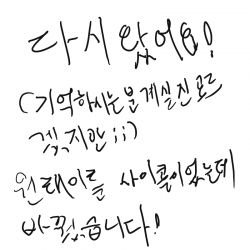 다시 왔어요!
(기억하시는분 계실진 모르
겠지만;;)
원래이름 사이콜이었는데
바꿨습니다!